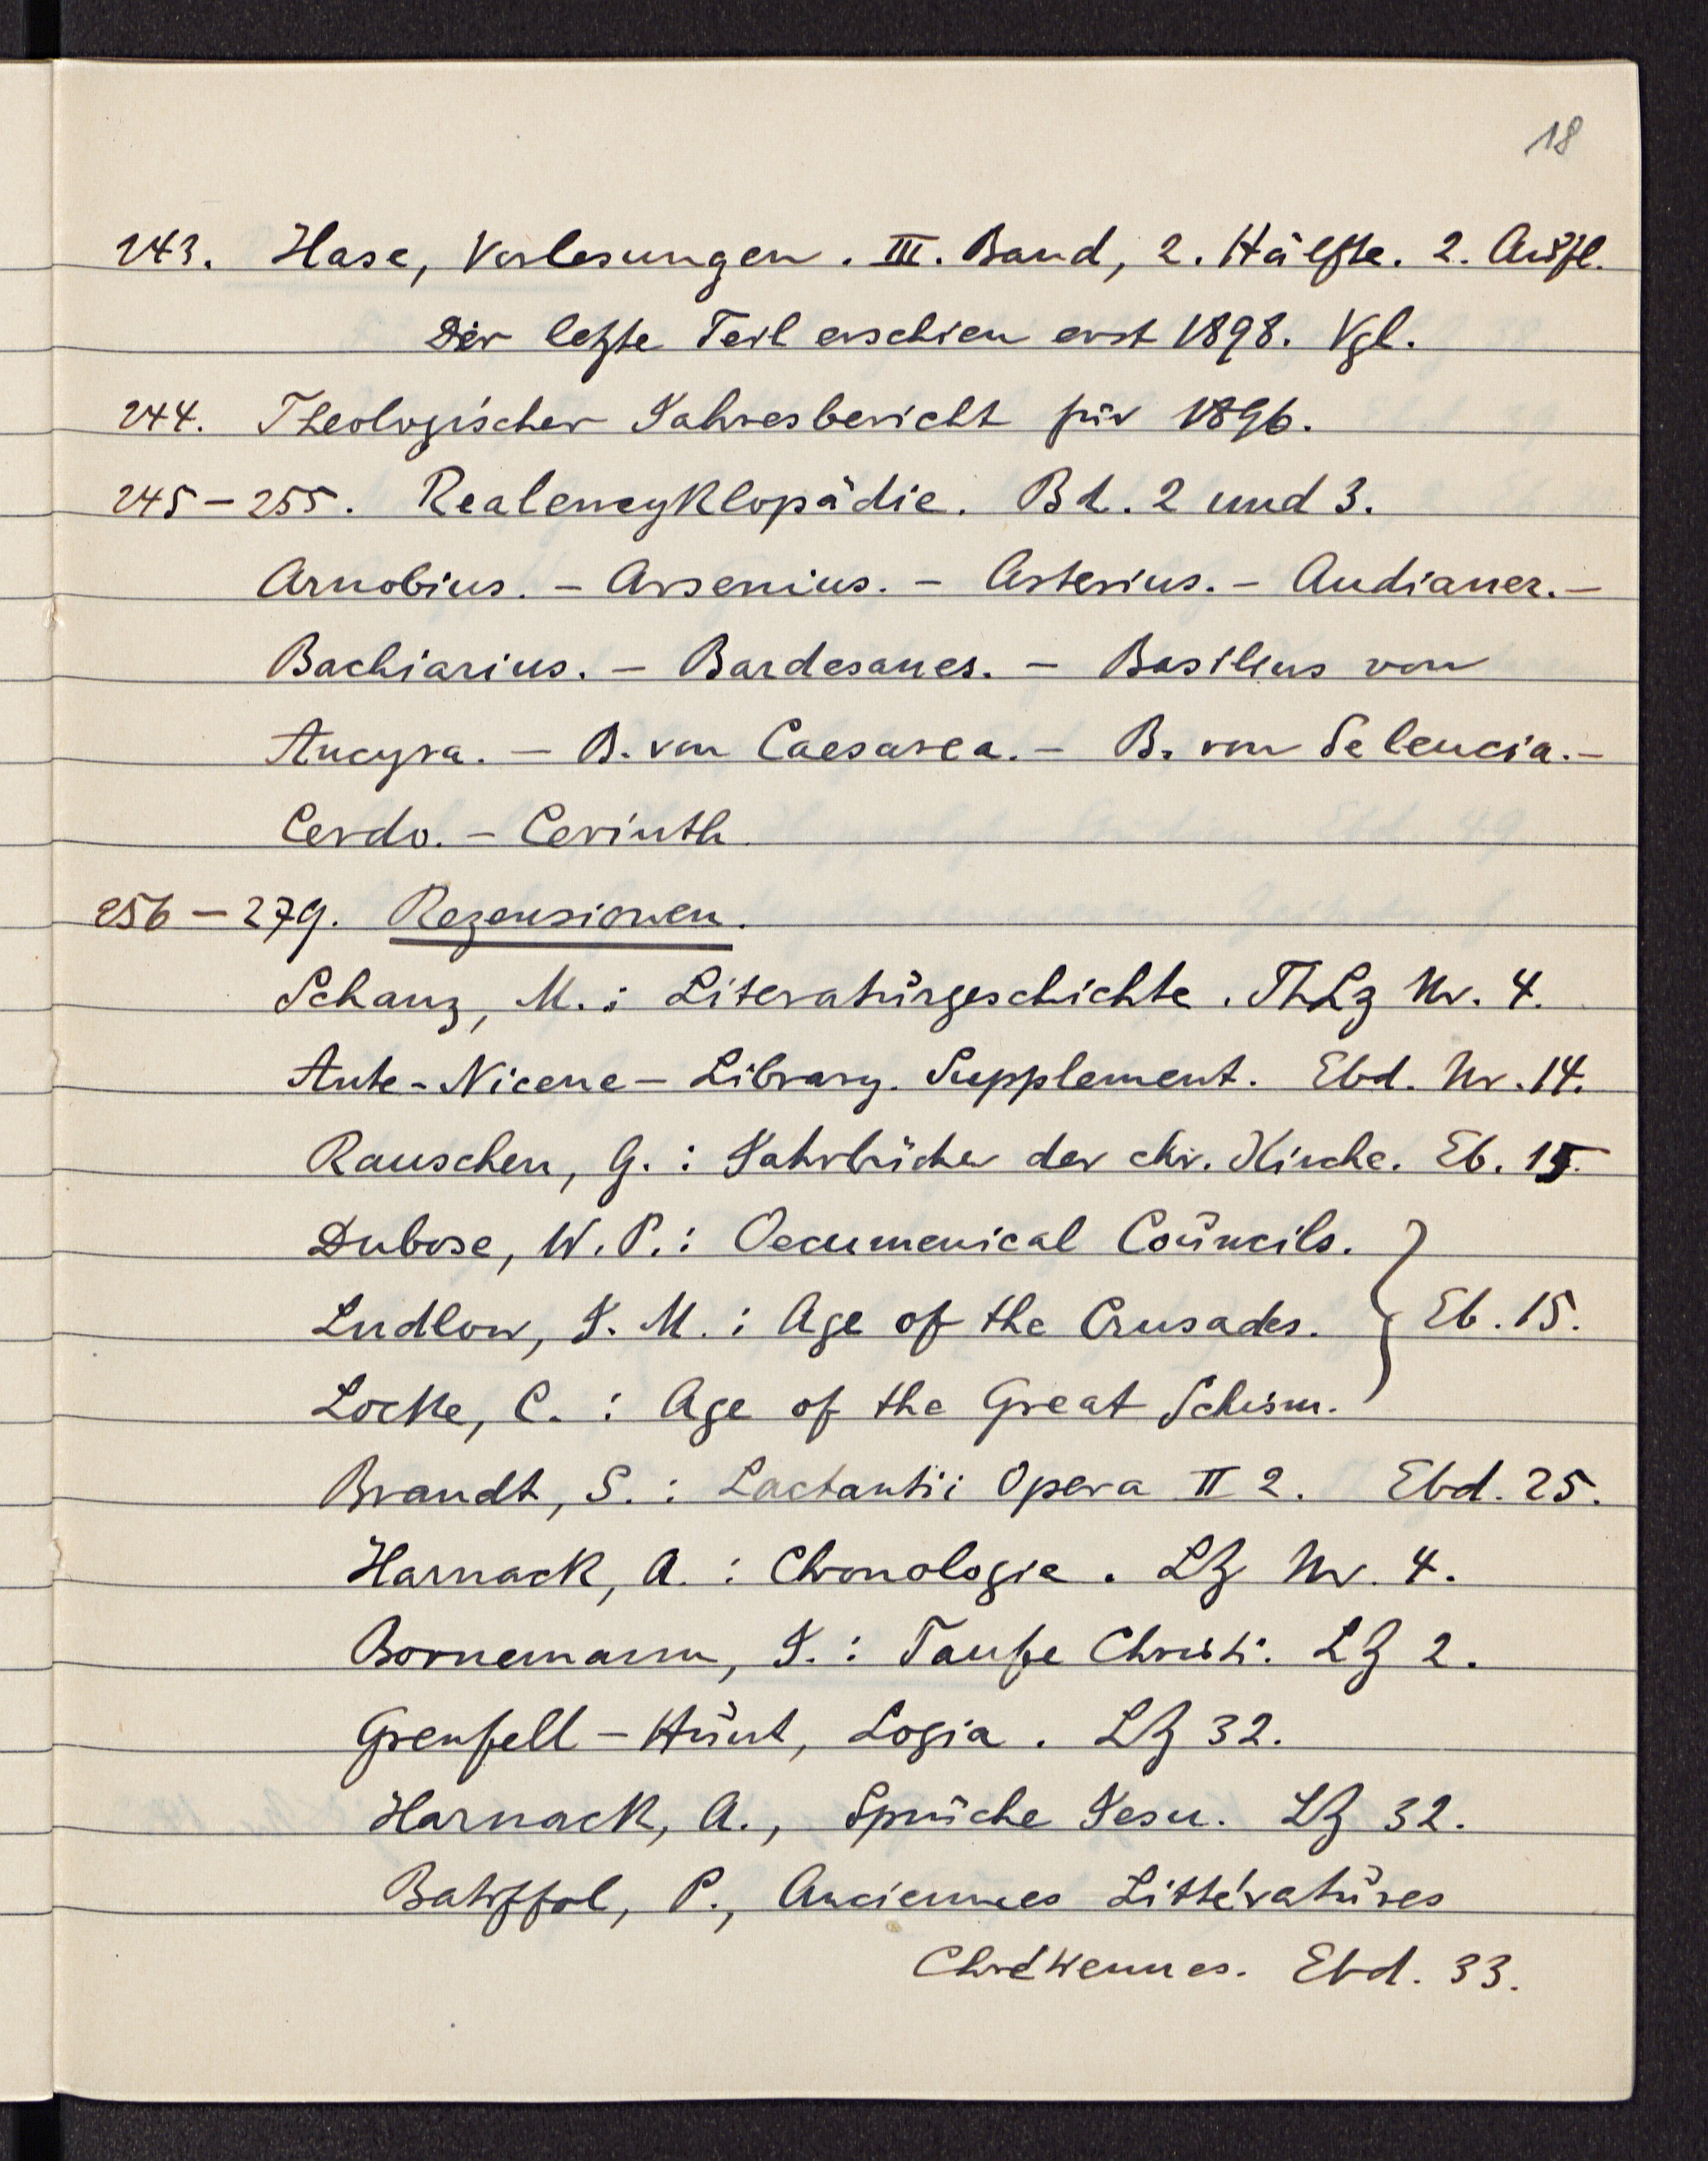 18
243. Hase, Vorlesungen. III. Band, 2. Hälfte. 2. Aufl.
Der letzte Teil erschien erst 1898. Vgl.
244. Theologischer Jahresbericht für 1896.
245-255. Realencyklopädie. Bd. 2 und 3.
Arnobius. - Arsenius. - Asterius. - Audianer. -
Bachiarius. - Bardesanes. - Basilius von
Ancyra. - B. von Caesarea. - B. von Seleucia. -
Cerdo. - Cerinth.
256-279. Rezensionen.
Schanz, M.: Literaturgeschichte. ThLz Nr. 4.
Ante-Nicene-Library. Supplement. Ebd. Nr. 14.
Rauschen, G.: Jahrbücher der chr. Kirche. Eb. 15.
Dubose, W. P.: Oecumenical Councils.
Ludlow, J. M.: Age of the Crusades. } Eb. 15.
Locke, C.: Age of the Great Schism.
Brandt, S.: Lactantii Opera II 2. Ebd. 25.
Harnack, A.: Chronologie. LZ Nr. 4.
Bornemann, J.: Taufe Christi. LZ 2.
Grenfell-Hunt, Logia. LZ 32.
Harnack, A., Sprüche Jesu. LZ 32.
Batiffol, P., Anciennes Littératures
Chrétiennes. Ebd. 33.